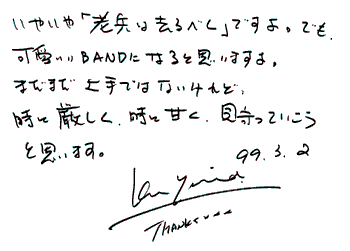 いやいや「老兵は去るべく」ですよ。でも、
可愛いいBANDになると思いますよ。
まだまだ上手ではないけれど、
時に厳しく、時に甘く、見守っていこう
と思います。
99.3.2
THANKS